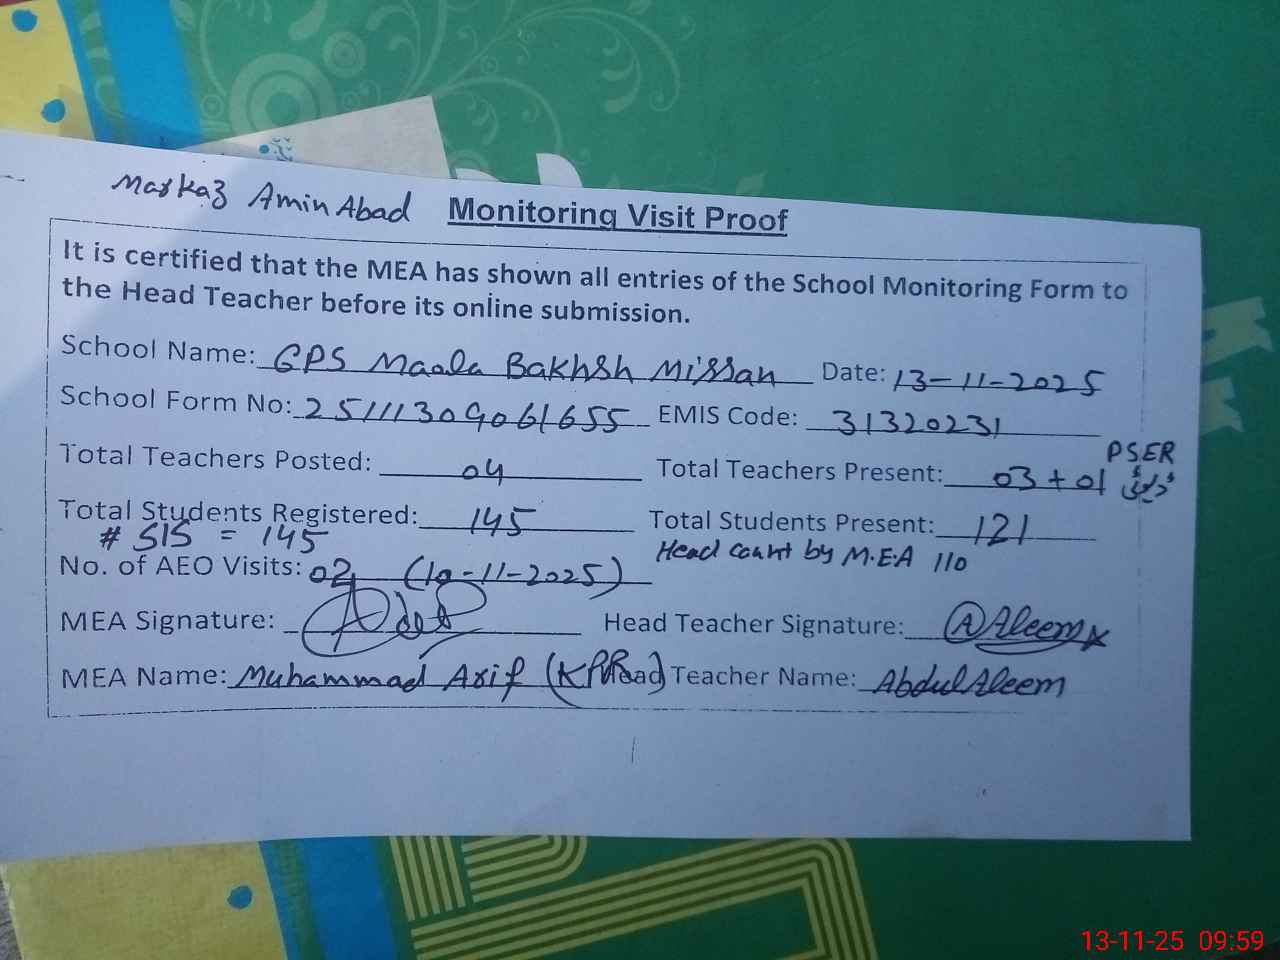 Markaz Amin Abad Monitoring Visit Proof
It is certified that the MEA has shown all entries of the School Monitoring Form to
the Head Teacher before its online submission.
School Name: GPS Maola Bakhsh Missan Date: 13-11-2025
School Form No: 25111309061655 EMIS Code: 31320231
PSER
Total Teachers Posted: 04 Total Teachers Present: 03 + 01
Total Students Registered: 145 Total Students Present: 121
# SIS = 145 Head count by M.E.A 110
No. of AEO Visits: 02 (10-11-2025)
MEA Signature: Head Teacher Signature: Aleem
MEA Name: Muhammad Arif Teacher Name: Abdul Aleem
13-11-25 09:59